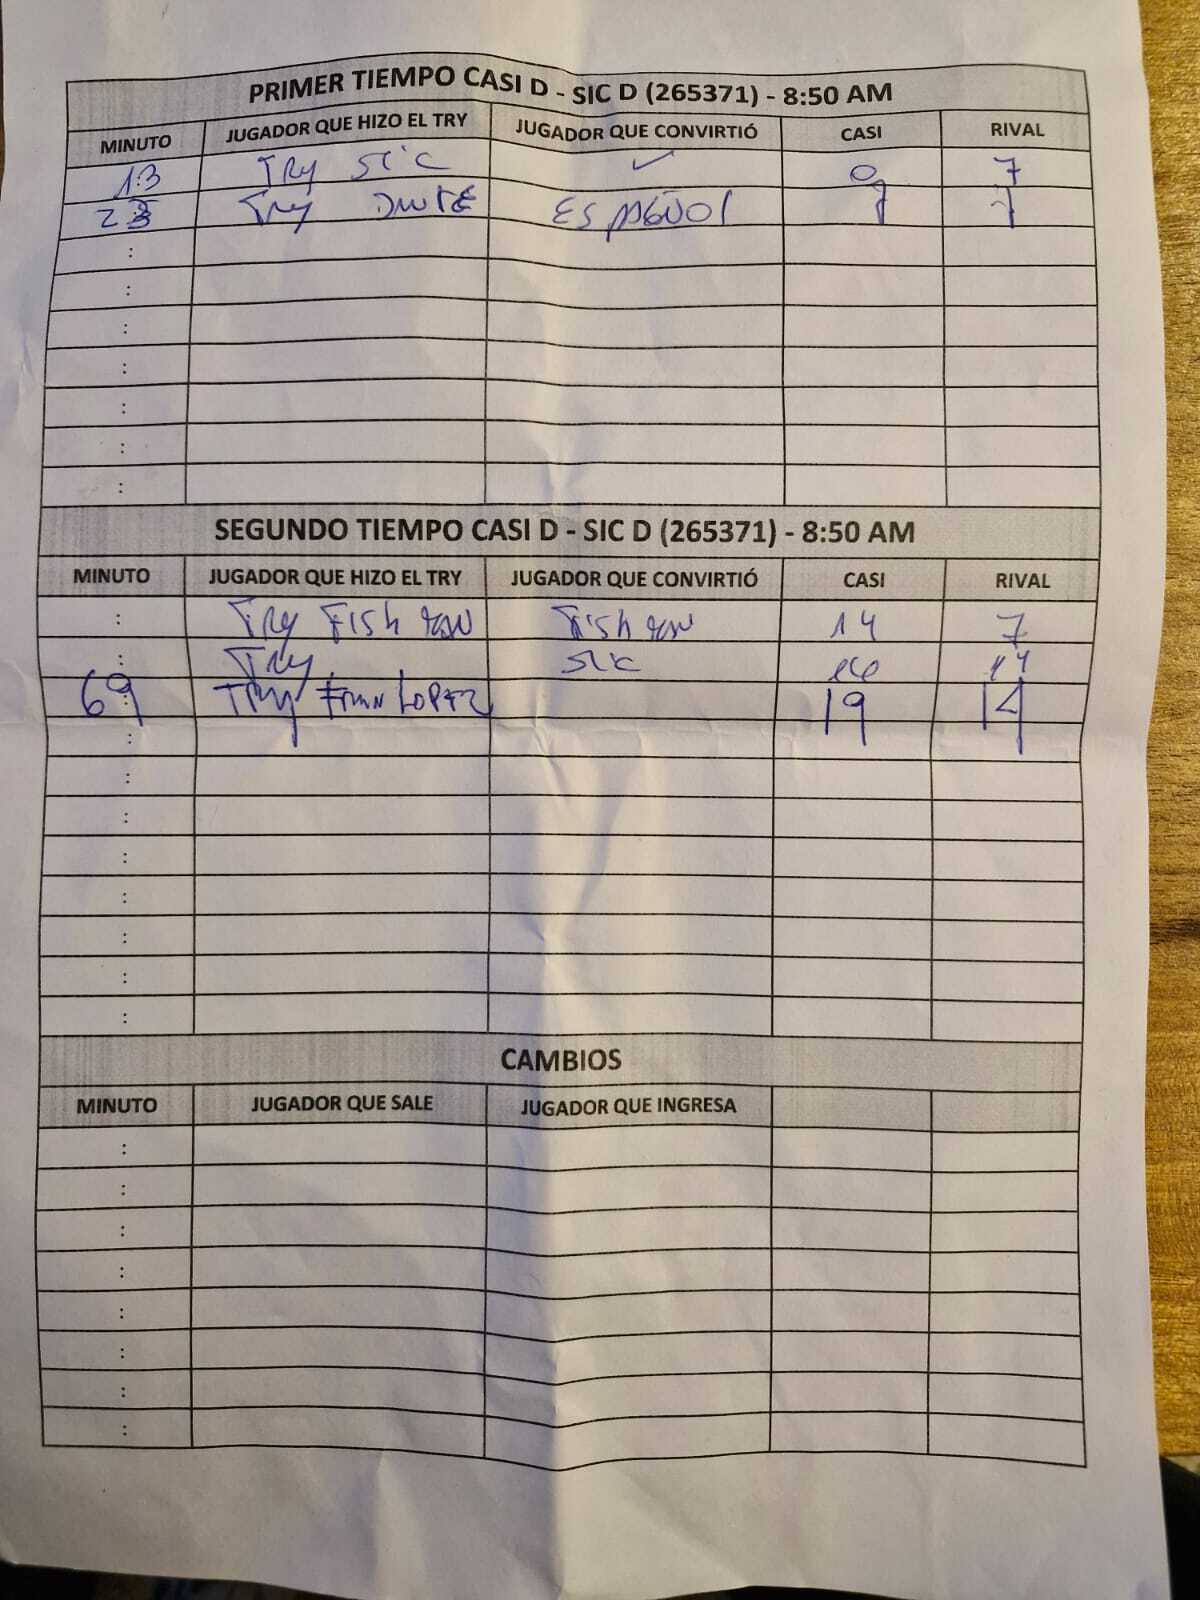 PRIMER TIEMPO CASI D - SIC D (265371) - 8:50 AM
MINUTO JUGADOR QUE HIZO EL TRY JUGADOR QUE CONVIRTIÓ CASI RIVAL
13 TRY SIC ✓ 0 7
23 TRY ESPAÑOL 7 7
:
:
:
:
:
:
:
SEGUNDO TIEMPO CASI D - SIC D (265371) - 8:50 AM
MINUTO JUGADOR QUE HIZO EL TRY JUGADOR QUE CONVIRTIÓ CASI RIVAL
: TRY FISH 14 7
: TRY SIC 14 14
69 TRY FRAN LOPEZ 19 14
:
:
:
:
:
:
:
:
CAMBIOS
MINUTO JUGADOR QUE SALE JUGADOR QUE INGRESA
:
:
:
:
:
:
:
: